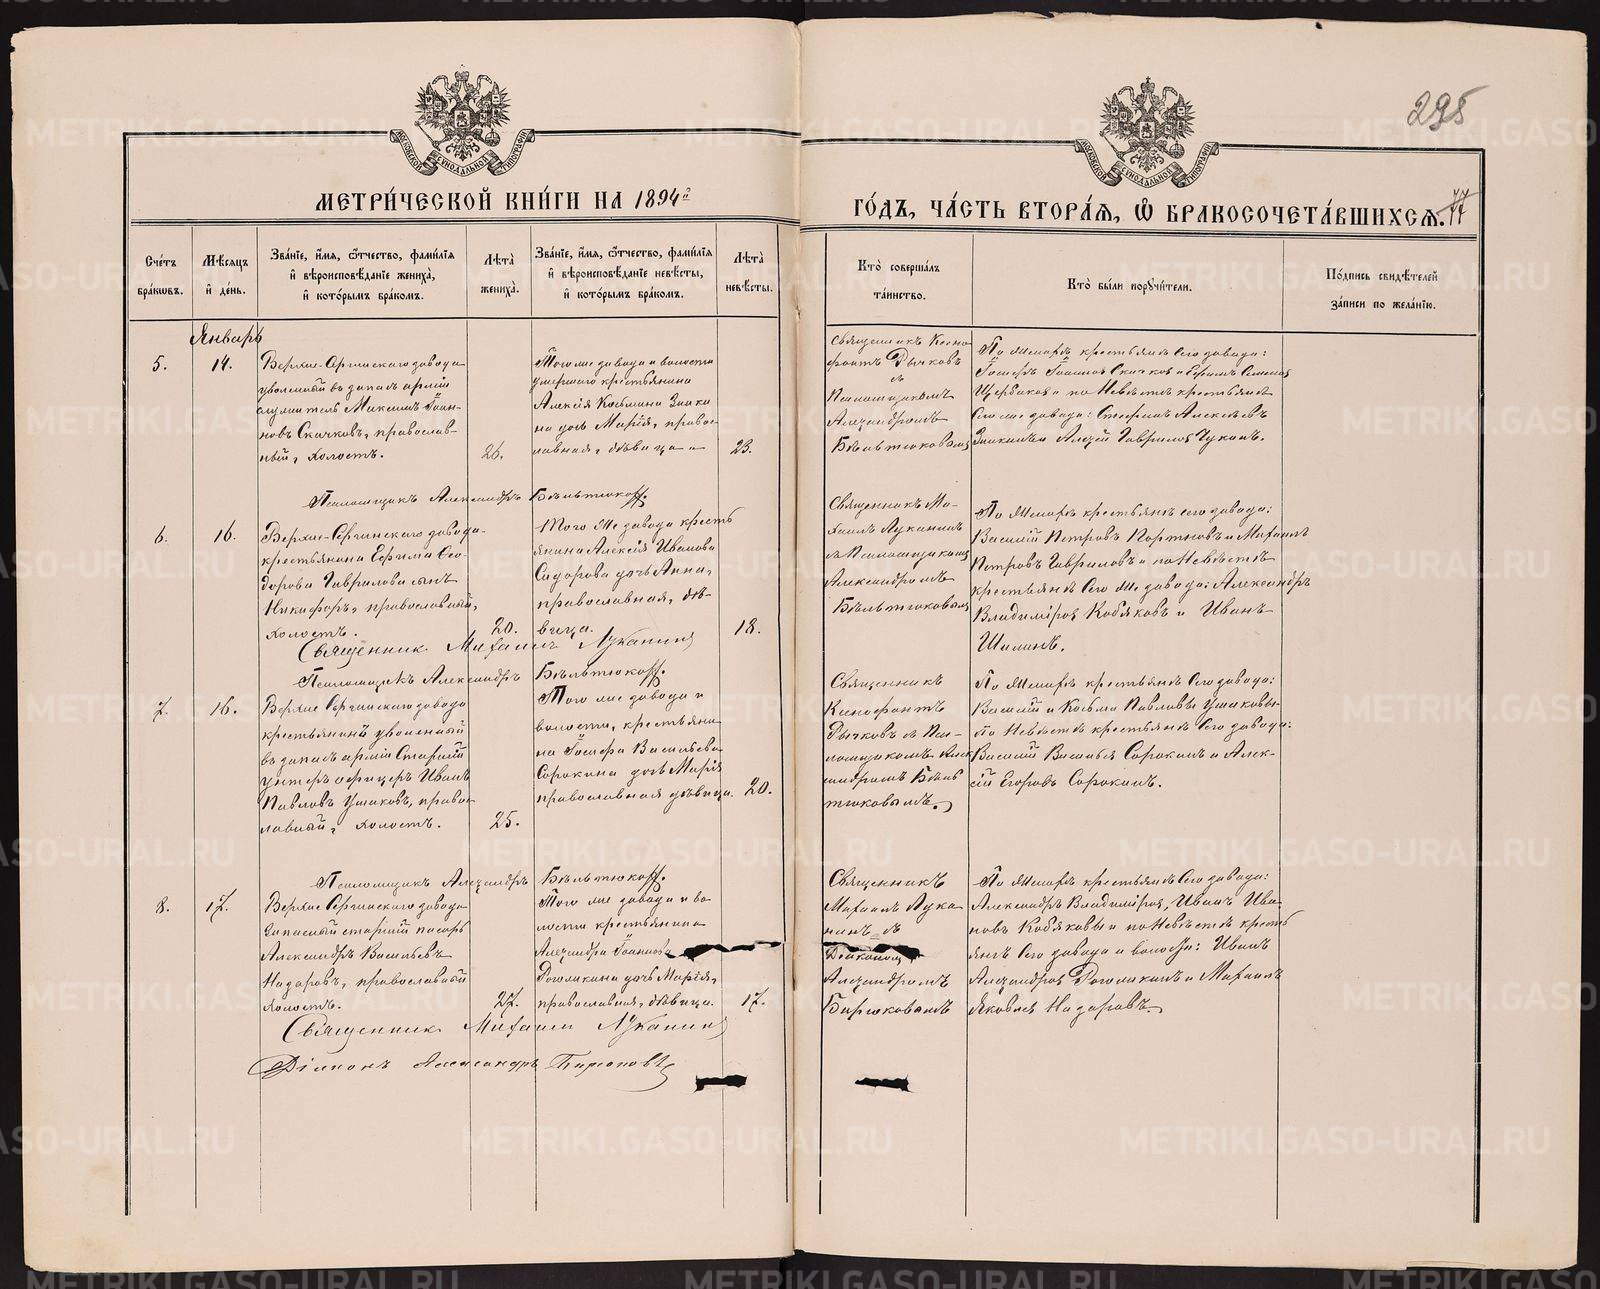 295
МОСКОВСКОЙ СѴНОДАЛЬНОЙ ТИПОГРАФІИ
МОСКОВСКОЙ СѴНОДАЛЬНОЙ ТИПОГРАФІИ
МЕТРИ́ЧЕСКОЙ КНИ́ГИ НА 1894й
ГО́ДЪ, ЧА́СТЬ ВТОРА́Я, Ѡ БРАКОСОЧЕТА́ВШИХСЯ.
77
Сче́тъ
бра́кѡвъ.
Мѣ́сяцъ
и҆ де́нь.
Зва́нїе, и҆́мя, ѻ҆́тчество, фами́лїя
и҆ вѣроисповѣ́данїе жениха̀,
и҆ кото́рымъ бра́комъ.
Лѣ́та̀
жениха̀.
Зва́нїе, и҆́мя, ѻ҆́тчество, фами́лїя
и҆ вѣроисповѣ́данїе невѣ́сты,
и҆ кото́рымъ бра́комъ.
Лѣ́та̀
невѣ́сты.
Кто̀ соверша́лъ
та́инство.
Кто̀ бы́ли порꙋчи́тели.
По́дпись свидѣ́телей
за́писи по жела́нїю.
Январь
5.
14.
Верхне-Сергинскаго завода
уволенный въ запасъ арміи
служитель Максимъ Іоан-
новъ Скачковъ, православ-
ный, холостъ.
26.
Того же завода и волости
умершаго крестьянина
Алексія Косьмина
на дочь Марія, право-
славная, дѣвица
23.
Священникъ Ксено-
фонтъ Рычковъ
съ
Псаломщикомъ
Александромъ
Бѣльтюковымъ
По Женихѣ крестьяне Сего завода:
Іосифъ Іоанновъ Скачковъ и Ефимъ Семеновъ
Щербаковъ и по Невѣстѣ крестьяне
Сего же завода: Стефанъ Алексѣевъ
Зыкинъ и Алексѣй Гавриловъ Чукинъ.
Псаломщикъ Александръ Бѣльтюковъ.
6.
16.
Верхне-Сергинскаго завода
крестьянина Ефима Ѳео-
дорова Гаврилова сынъ
Никифоръ, православный,
холостъ.
20.
Того же завода кресть-
янина Алексія Иванова
Сидорова дочь Анна,
православная, дѣ-
вица.
18.
Священникъ Ми-
хаилъ Луканинъ
съ Псаломщикомъ
Александромъ
Бѣльтюковымъ
По Женихѣ крестьяне сего завода:
Василій Петровъ Портновъ и Михаилъ
Петровъ Гавриловъ и по Невѣстѣ
крестьяне Сего Же завода: Александръ
Владиміровъ Кобяковъ и Иванъ
Шилинъ.
Священник Михаилъ Луканинъ
Псаломщикъ Александръ Бѣльтюковъ.
7.
16.
Верхне Сергинскаго завода
крестьянинъ уволенный
въ запасъ арміи Старшій
унтеръ офицеръ Иванъ
Павловъ Ушаковъ, право-
славный, холостъ.
25.
Того же завода и
волости, крестьяни-
на Іосифа Васильева
Сорокина дочь Марія
православная дѣвица.
20.
Священникъ
Ксенофонтъ
Рычковъ съ Пса-
ломщикомъ Алек-
сандромъ Бѣль-
тюковымъ.
По Женихѣ крестьяне Сего завода:
Василій и Косьма Павловы Ушаковы
По Невѣстѣ крестьяне Сего завода:
Василій Васильевъ Сорокинъ и Алек-
сій Егоровъ Сорокинъ.
Псаломщикъ Александръ Бѣльтюковъ.
8.
17.
Верхне Сергинскаго завода
Запасный старшій писарь
Александръ Васильевъ
Назаровъ, православный
холостъ.
27.
Того же завода и во-
лости крестьянина
Александра Іоаннова
Рогожкина дочь Марія,
православная, дѣвица.
17.
Священникъ
Михаилъ Лука-
нинъ съ
Діакономъ
Александромъ
Бирюковымъ
По Женихѣ крестьяне Сего завода:
Александръ Владиміровъ, Иванъ Ива-
новъ Кобяковы и по Невѣстѣ кресть-
яне Сего завода и волости: Иванъ
Александровъ Рогожкинъ и Михаилъ
Яковлевъ Назаровъ.
Священник Михаилъ Луканинъ
Діаконъ Александръ Бирюковъ